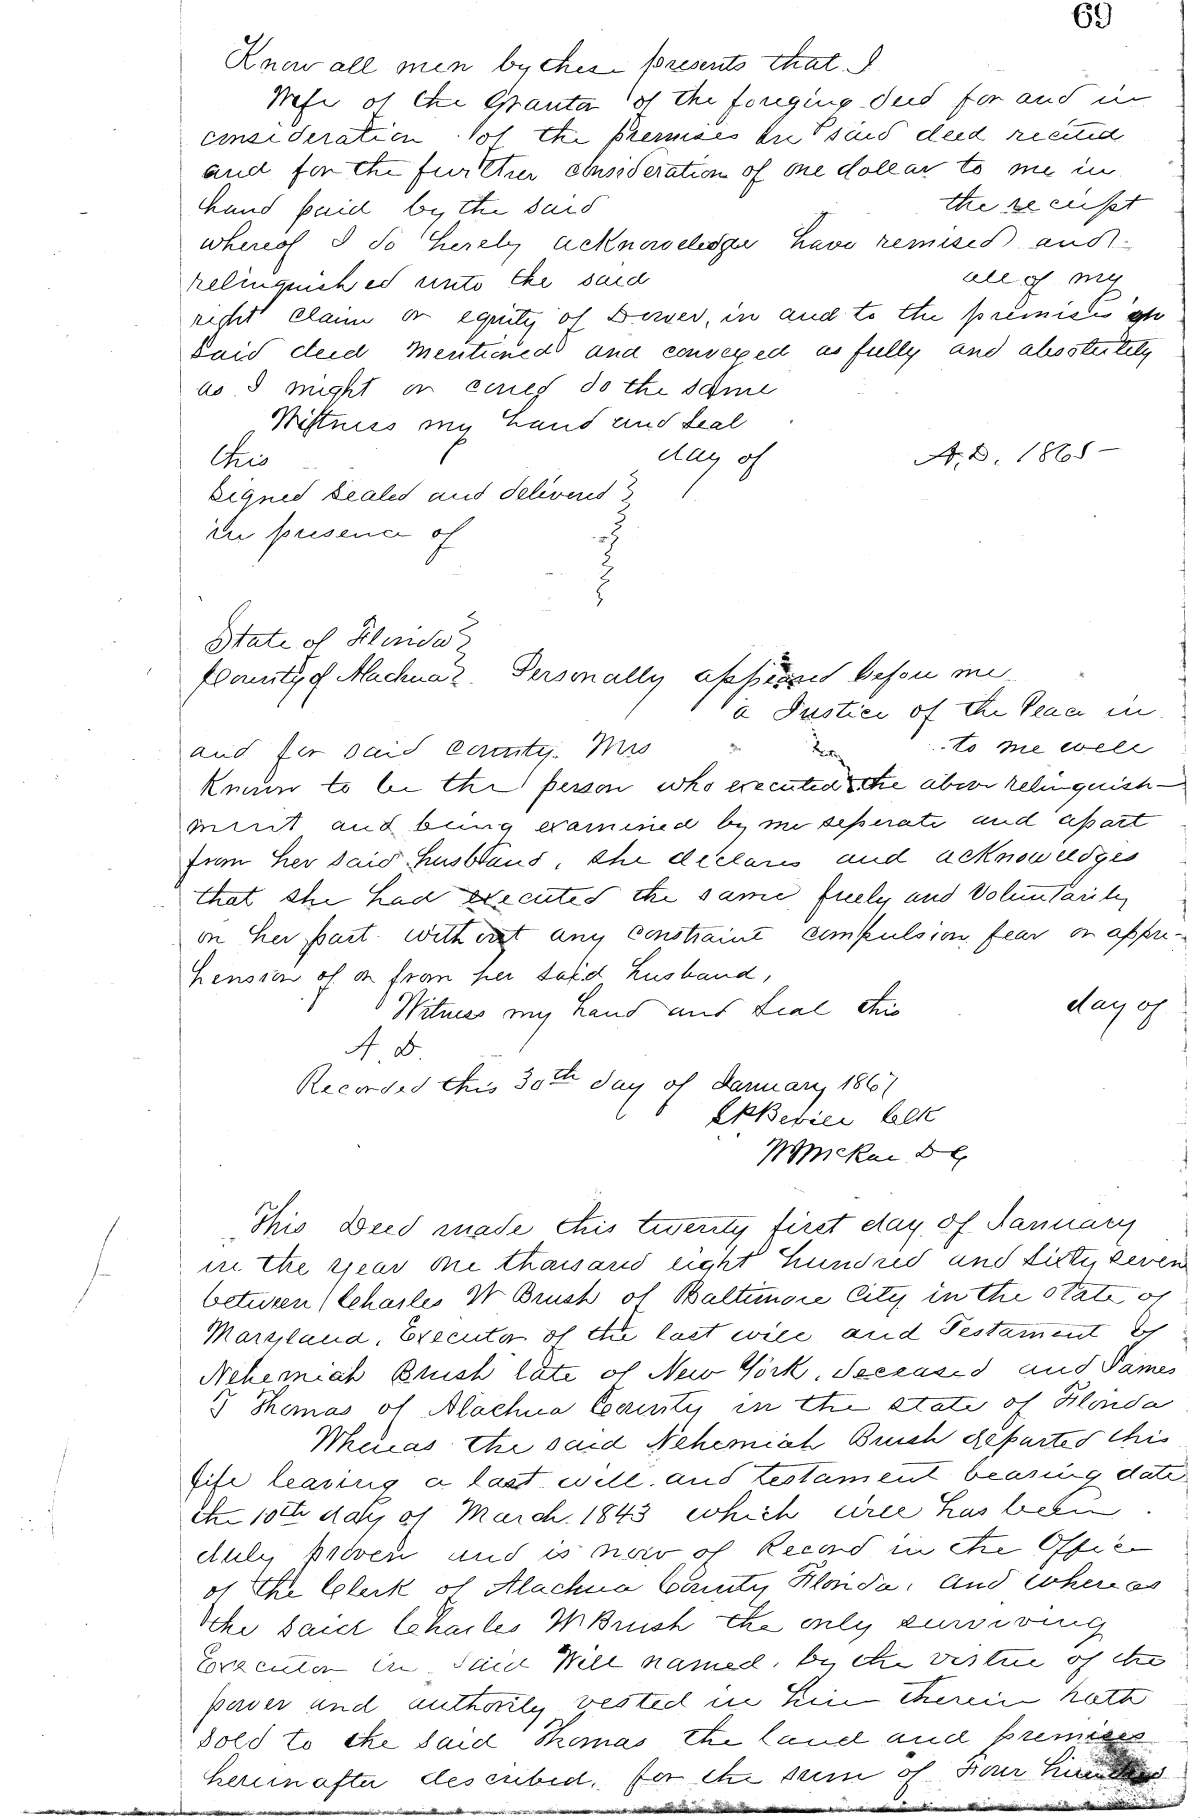 69
Know all men by these presents that I
Wife of the Grantor of the foreging deed for and in
consideration of the premises in said deed recited
and for the further consideration of one dollar to me in
hand paid by the said the receipt
whereof I do hereby acknowledge have remised and
relinquished unto the said all of my
right claim or equity of Dower, in and to the premises in
said deed mentioned and conveyed as fully and absolutely
as I might or could do the same
Witness my hand and seal
this day of A.D. 186
Signed sealed and delivered
in presence of
State of Florida
County of Alachua Personally appeared before me
a Justice of the Peace in
and for said county. Mrs to me well
known to be the person who executed the above relinquish-
ment and being examined by me seperate and apart
from her said husband, she declares and acknowledges
that she had executed the same freely and Voluntarily
on her part without any constraint compulsion fear or appre-
hension of or from her said husband,
Witness my hand and seal this day of
A. D.
Recorded this 30th day of January 1867
Clk
McRae D C
This Deed made this twenty first day of January
in the year one thousand eight hundred and sixty seven
between Charles W Brush of Baltimore City in the state of
Maryland, Executor of the last will and Testament of
Nehemiah Brush late of New York, deceased and James
T Thomas of Alachua County in the state of Florida
Whereas the said Nehemiah Brush departed this
life leaving a last will and testament bearing date
the 10th day of March 1843 which will has been
duly proven and is now of Record in the Office
of the Clerk of Alachua County Florida, and whereas
the said Charles W Brush the only surviving
Executor in said Will named, by the virtue of the
power and authority vested in him therein hath
sold to the said Thomas the land and premises
herein after described, for the sum of Four hundred